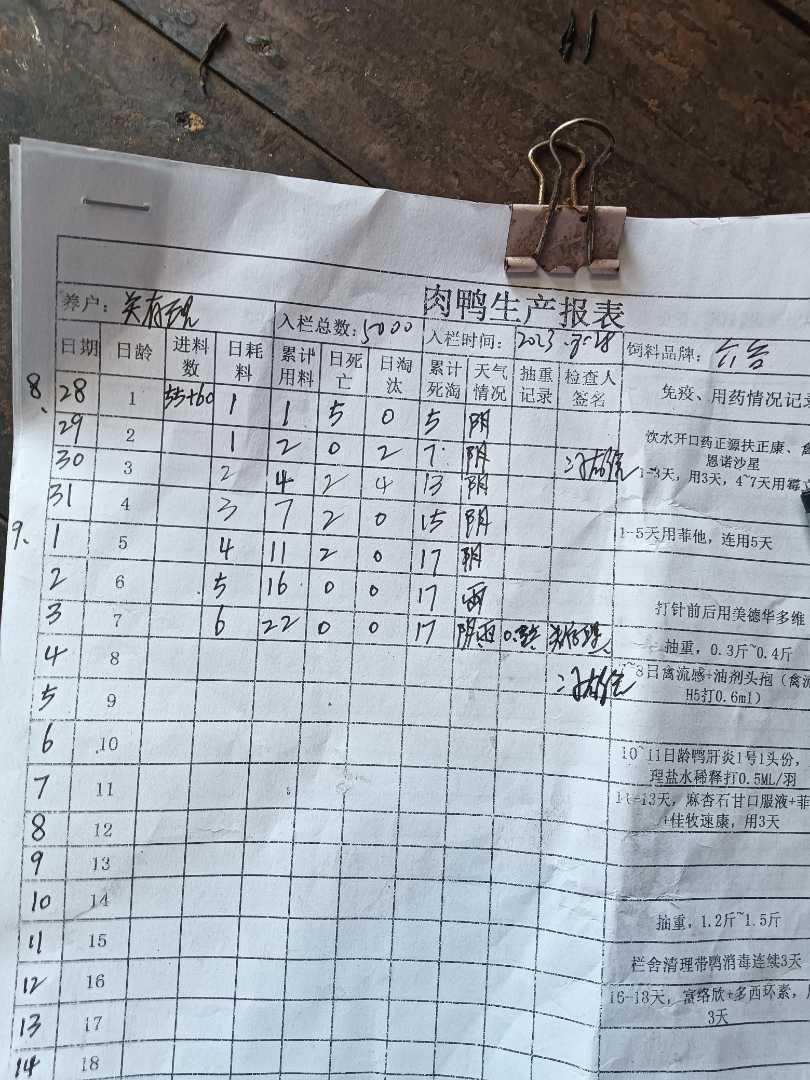 肉鸭生产报表
养户： 入栏总数：5000 入栏时间：2023.8.28 饲料品牌：六合
日期 日龄 进料数 日耗料 累计用料 日死亡 日淘汰 累计死淘 天气情况 抽重记录 检查人签名 免疫、用药情况记
8、28 1 1 1 5 0 5 阴
29 2 1 2 0 2 7 阴 饮水开口药正源扶正康、
恩诺沙星
30 3 2 4 2 4 13 阴 1~3天，用3天，4~7天用霉
31 4 3 7 2 0 15 阴
9、1 5 4 11 2 0 17 阴 1-5天用菲他，连用5天
2 6 5 16 0 0 17 雨
3 7 6 22 0 0 17 阴雨 打针前后用美德华多维
4 8 抽重，0.3斤~0.4斤
~8日禽流感+油剂头孢（禽流
H5打0.6ml）
5 9
6 10 10~11日龄鸭肝炎1号1头份，
理盐水稀释打0.5ML/羽
7 11 13天，麻杏石甘口服液+菲
8 12 +佳牧速康，用3天
9 13
10 14 抽重，1.2斤~1.5斤
11 15 栏舍清理带鸭消毒连续3天
12 16 16-18天，富络欣+多西环素，
13 17 3天
14 18